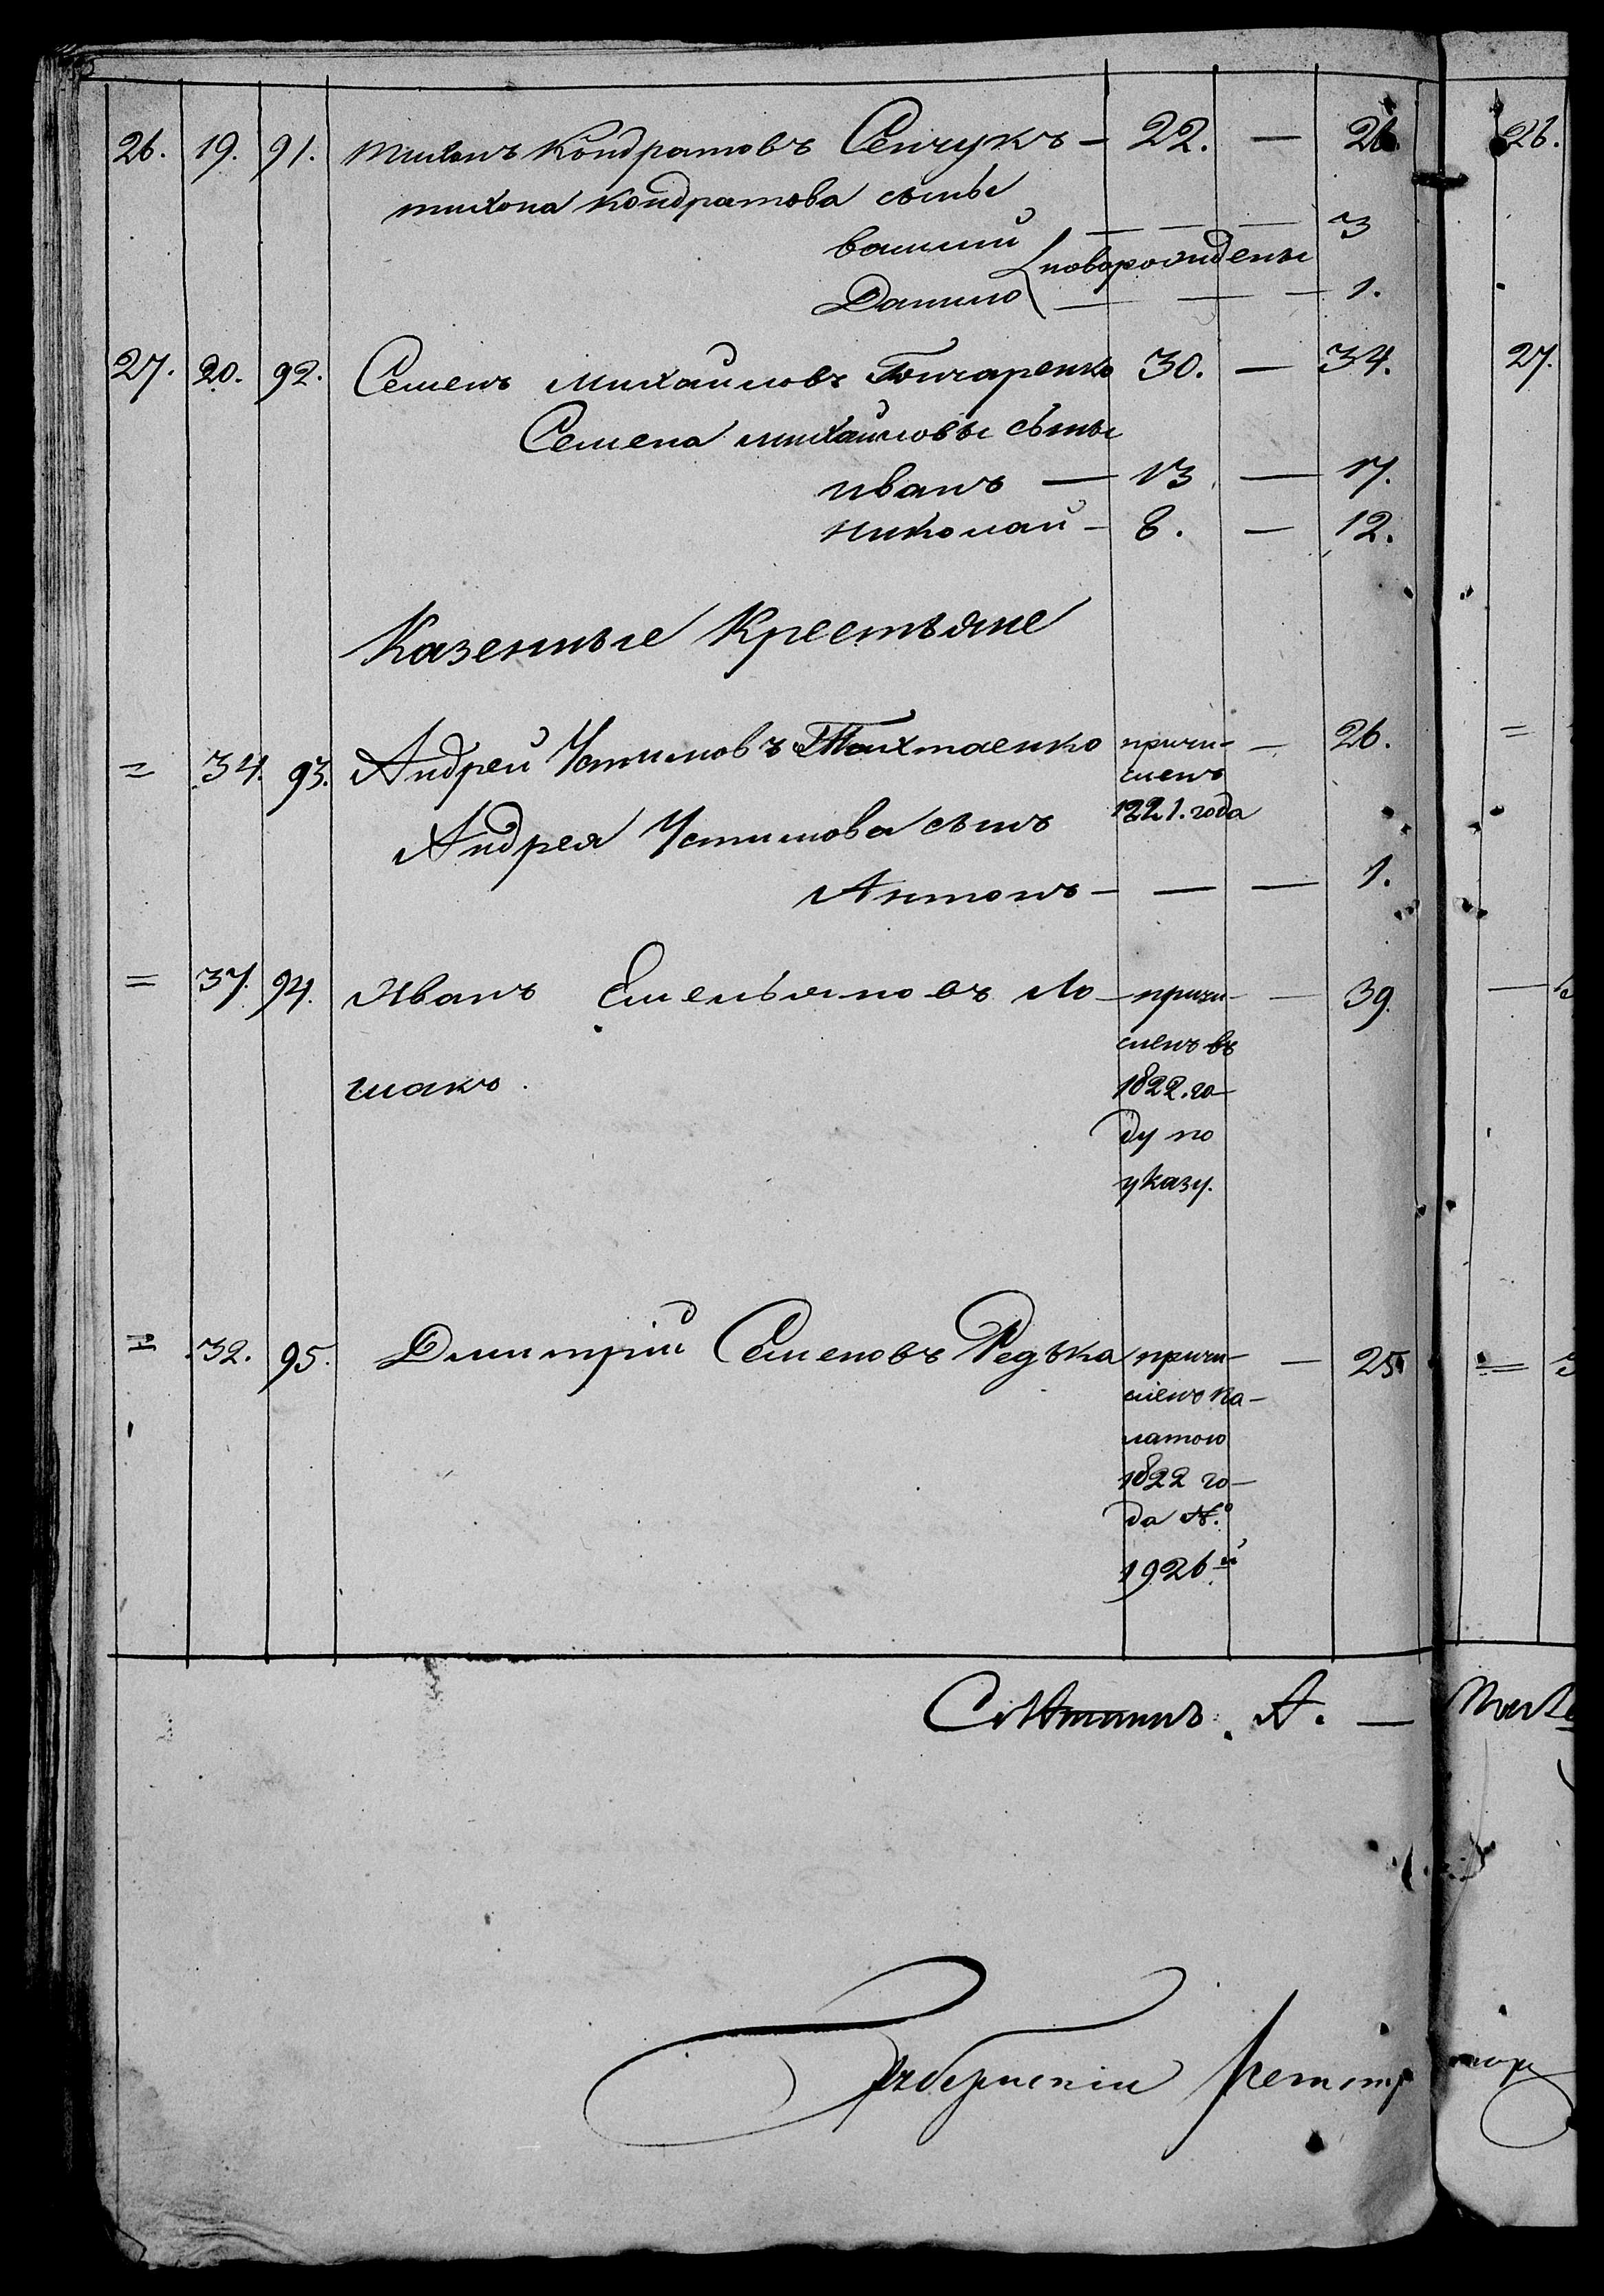 26. 19. 91. Тихонъ Кондратовъ Сенчукъ — 22. — 26.
Тихона Кондратова сыны
Василий — — — 3
новорожденны
Данило — — — 1.
27. 20. 92. Семенъ Михайловъ Гончаренко 30. — 34.
Семена Михайловы сыны
Иванъ — 13. — 17.
Николай — 8. — 12.
Казенные Крестьяне
= 34. 93. Андрей Устимовъ причи- — 26.
сленъ
1821. года
Андрея Устимова сынъ
Антонъ — — — 1.
= 37. 94. Иванъ Емельяновъ Ло- причи- — 39.
сленъ въ
шакъ. 1822. го-
ду по
указу.
= 32. 95. Дмитрій Семеновъ Редька причи- — 25.
сленъ Па-
латою
1822 го-
да №
1926й
А. —
Губернскій Регистр
26.
27.
=
—
=